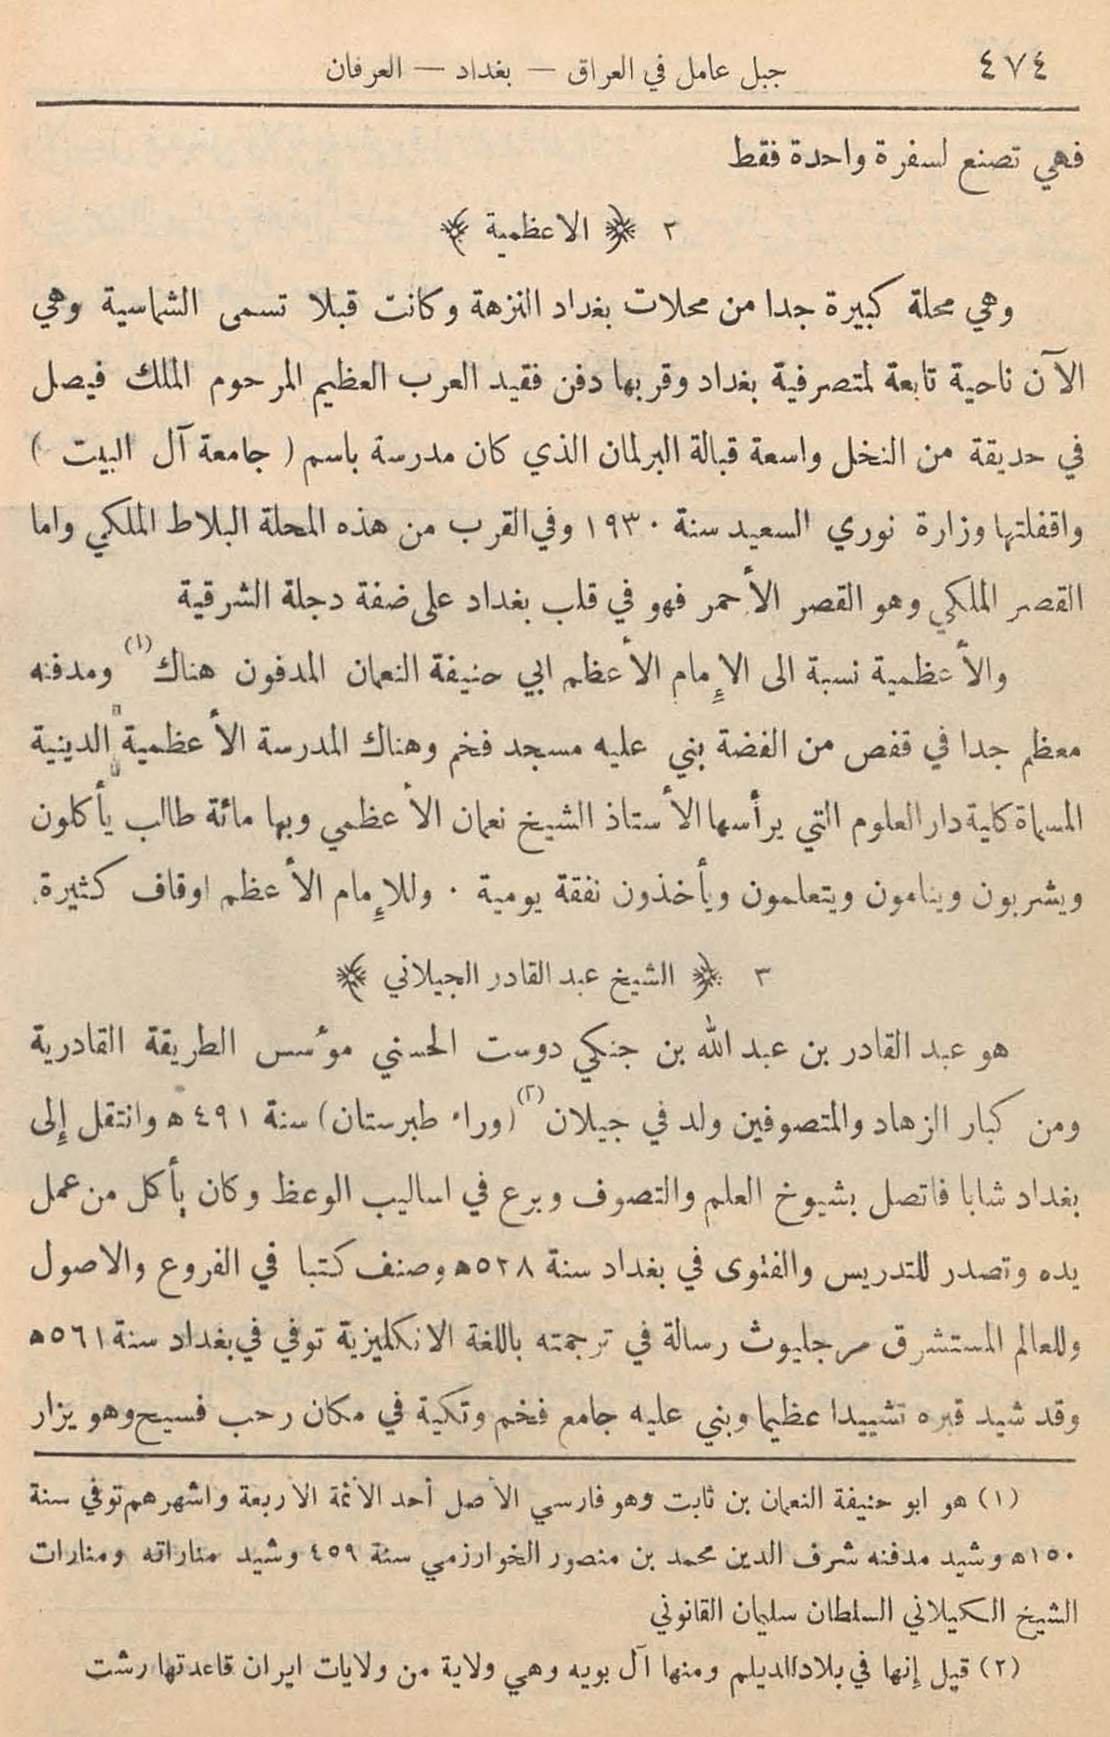 ٤٧٤ جبل عامل في العراق — بغداد — العرفان
فهي تصنع لسفرة واحدة فقط
٢ ﴿ الاعظمية ﴾
وهي محلة كبيرة جدا من محلات بغداد النزهة وكانت قبلا تسمى الشماسية وهي
الآن ناحية تابعة لمتصرفية بغداد وقربها دفن فقيد العرب العظيم المرحوم الملك فيصل
في حديقة من النخل واسعة قبالة البرلمان الذي كان مدرسة باسم ( جامعة آل البيت )
واقفلتها وزارة نوري السعيد سنة ١٩٣٠ وفي القرب من هذه المحلة البلاط الملكي واما
القصر الملكي وهو القصر الأحمر فهو في قلب بغداد على ضفة دجلة الشرقية
والأعظمية نسبة الى الإمام الأعظم ابي حنيفة النعمان المدفون هناك (١) ومدفنه
معظم جدا في قفص من الفضة بني عليه مسجد فخم وهناك المدرسة الأعظمية الدينية
المسماة كلية دار العلوم التي يرأسها الأستاذ الشيخ نعمان الأعظمي وبها مائة طالب يأكلون
ويشربون وينامون ويتعلمون ويأخذون نفقة يومية . وللإمام الأعظم اوقاف كثيرة.
٣ ﴿ الشيخ عبد القادر الجيلاني ﴾
هو عبد القادر بن عبد الله بن جنكي دوست الحسني مؤسس الطريقة القادرية
ومن كبار الزهاد والمتصوفين ولد في جيلان (٢) (وراء طبرستان) سنة ٤٩١ ه وانتقل إلى
بغداد شابا فاتصل بشيوخ العلم والتصوف وبرع في اساليب الوعظ وكان يأكل من عمل
يده وتصدر للتدريس والفتوى في بغداد سنة ٥٢٨ه وصنف كتبا في الفروع والاصول
وللعالم المستشرق مرجليوث رسالة في ترجمته باللغة الانكليزية توفي في بغداد سنة ٥٦١ه
وقد شيد قبره تشييدا عظيما وبني عليه جامع فخم وتكية في مكان رحب فسيح وهو يزار
(١) هو ابو حنيفة النعمان بن ثابت وهو فارسي الأصل أحد الأئمة الأربعة واشهرهم توفي سنة
١٥٠ه وشيد مدفنه شرف الدين محمد بن منصور الخوارزمي سنة ٤٥٩ وشيد مناراته ومنارات
الشيخ الكيلاني السلطان سليمان القانوني
(٢) قيل إنها في بلاد الديلم ومنها آل بويه وهي ولاية من ولايات ايران قاعدتها رشت